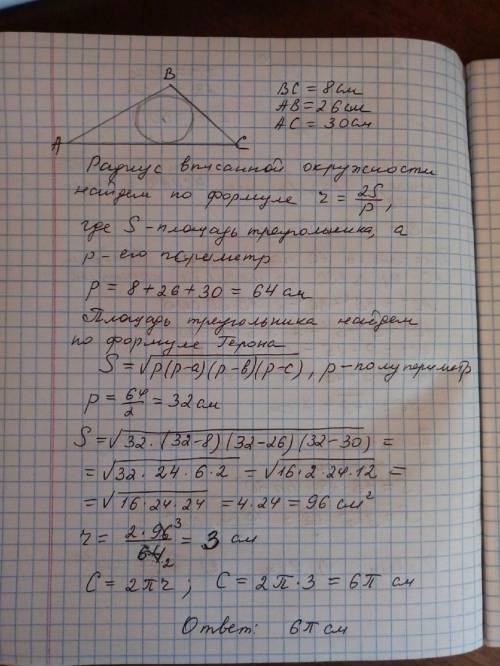 B
A
C
BC = 8 см
AB = 26 см
AC = 30 см
Радиус вписанной окружности
найдем по формуле r = 2S/P,
где S - площадь треугольника, а
p - его периметр
P = 8 + 26 + 30 = 64 см
Площадь треугольника найдем
по формуле Герона
S = √(p(p-a)(p-b)(p-c)), p - полупериметр
p = 64/2 = 32 см
S = √(32 · (32-8)(32-26)(32-30)) =
= √(32 · 24 · 6 · 2) = √(16 · 2 · 24 · 12) =
= √(16 · 24 · 24) = 4 · 24 = 96 см²
r = 2 · 96 3/64 2 = 3 см
C = 2πr ; C = 2π · 3 = 6π см
Ответ: 6π см